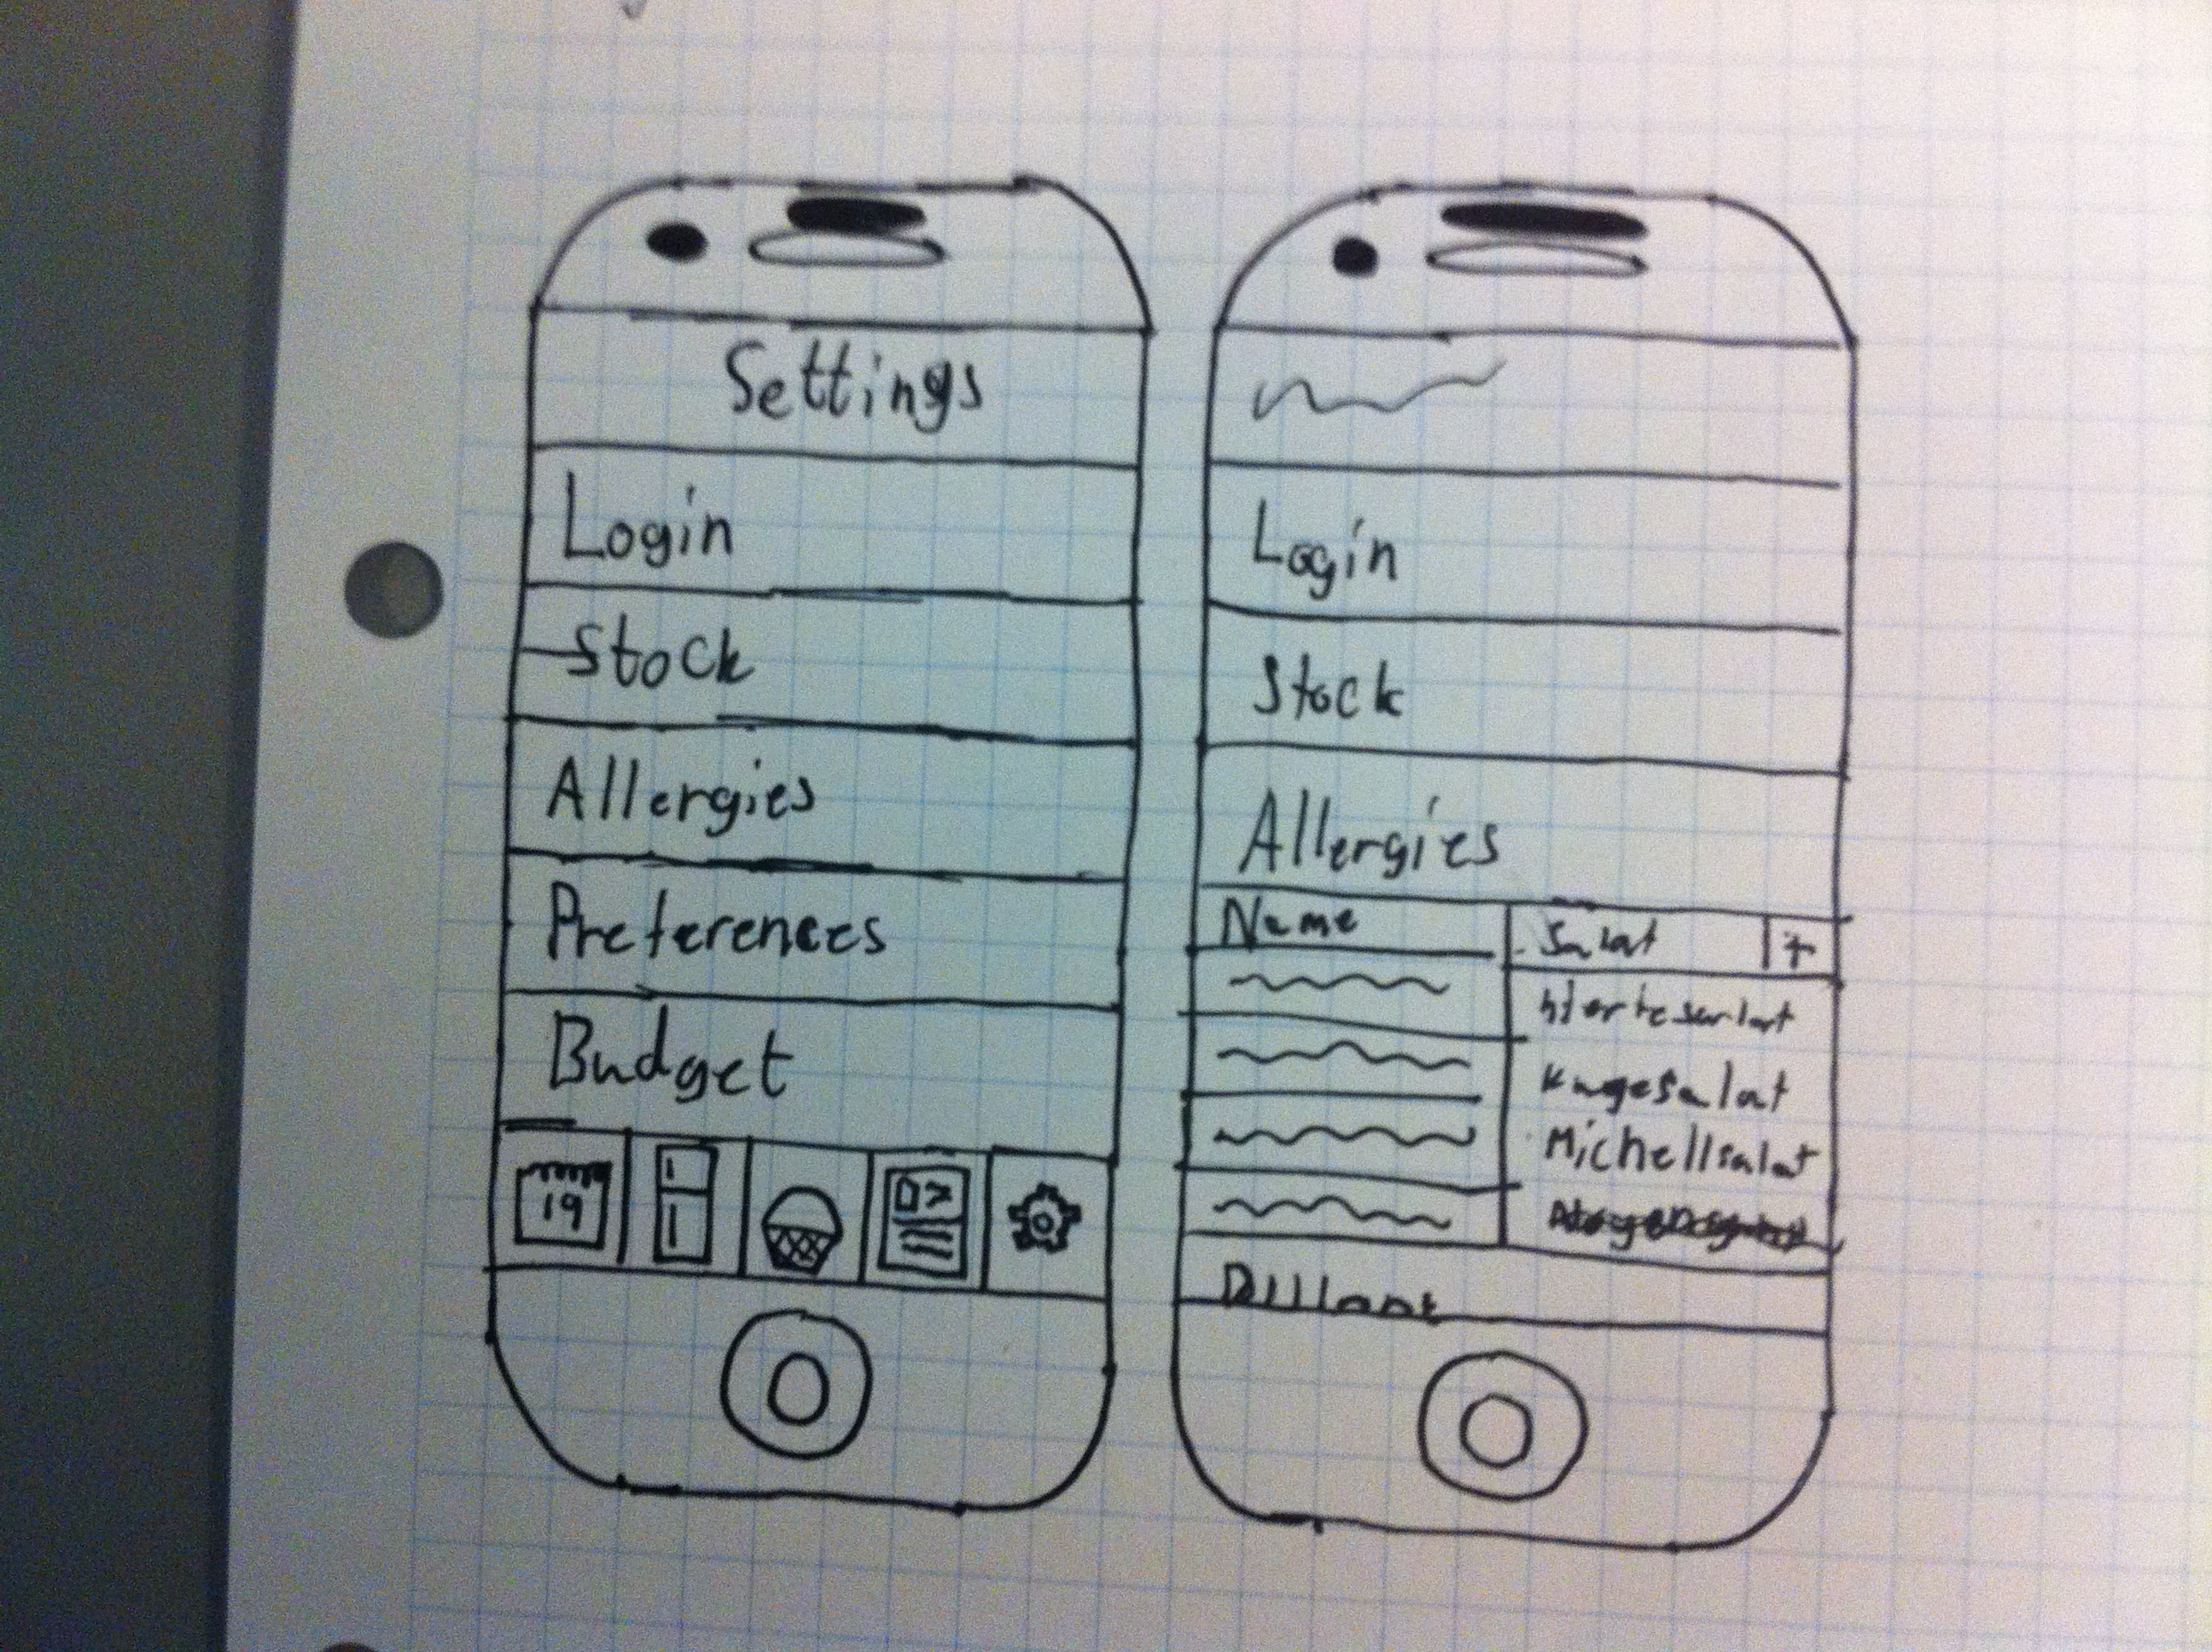 Settings
Login
Stock
Allergies
Preferences
Budget
19
Login
Stock
Allergies
Name
Salat +
Hjertesalat
Kagesalat
Michellsalat